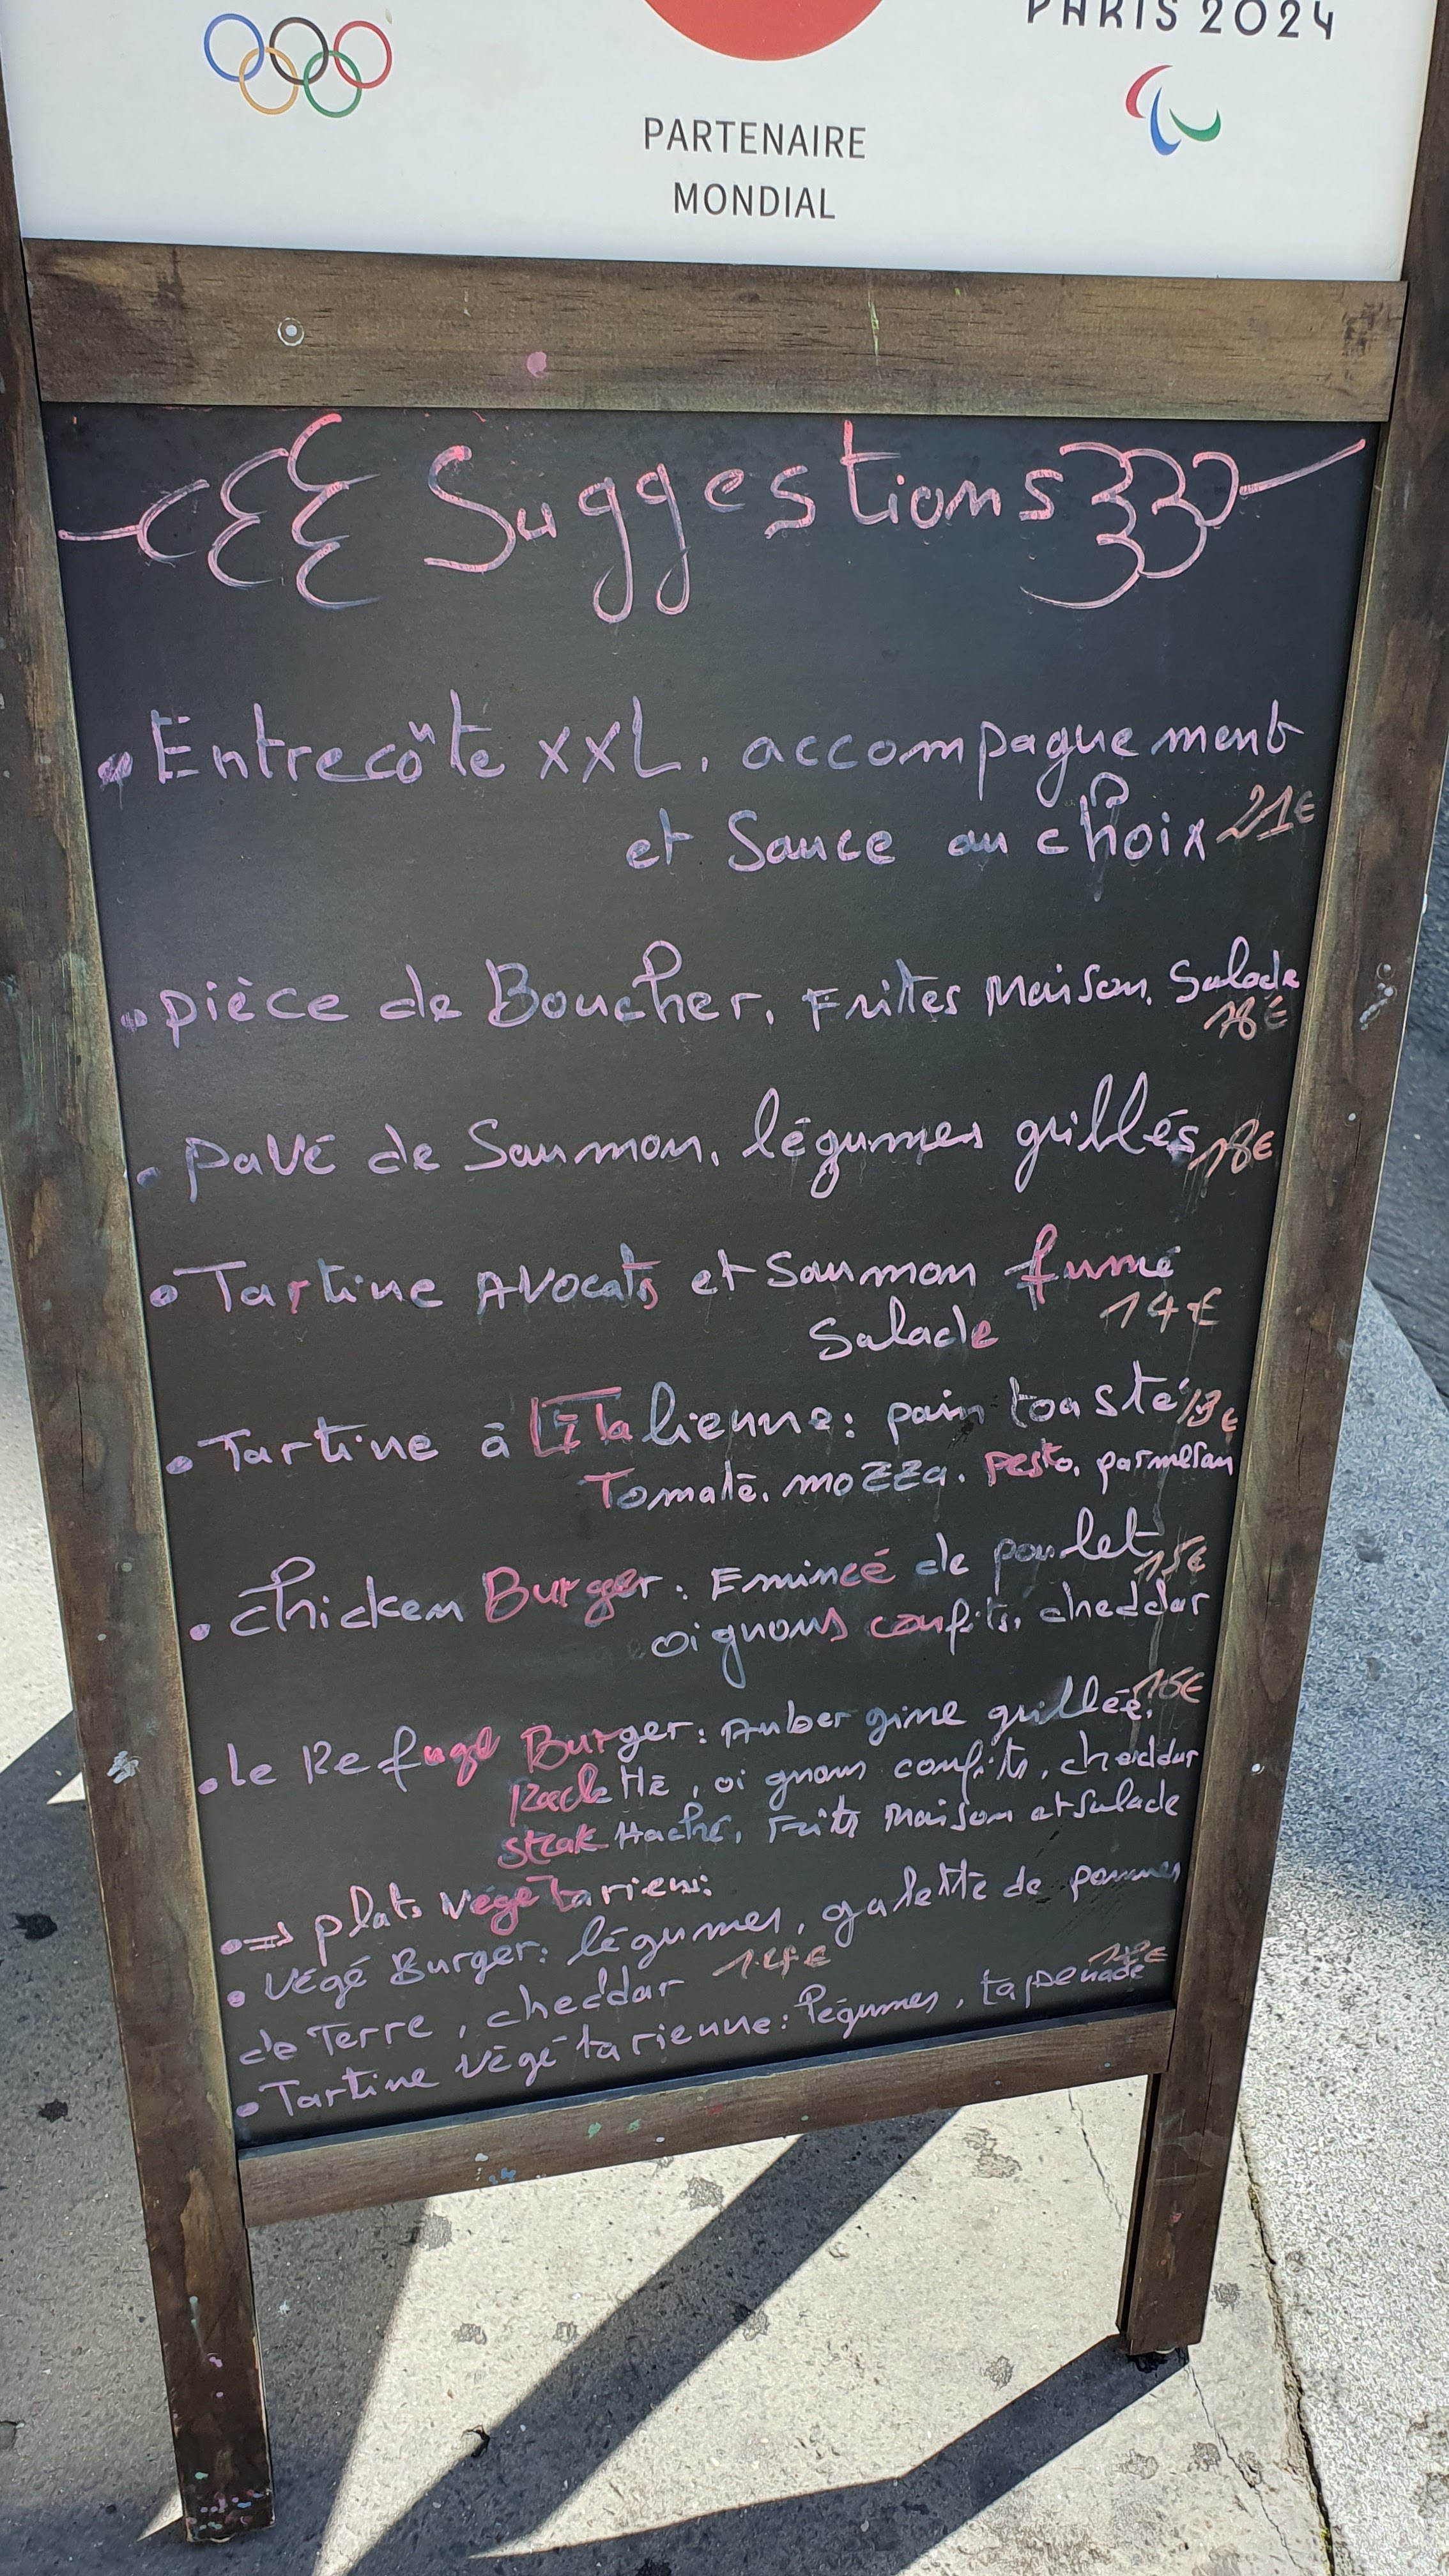 PARIS 2024
PARTENAIRE
MONDIAL
Suggestions
• Entrecôte XXL, accompagnement
et Sauce au choix 21€
• pièce de Boucher, Frites Maison, Salade
18€
• pavé de Saumon, légumes grillés 18€
• Tartine Avocats et Saumon fumé
Salade 14€
• Tartine à L'Italienne: pain toasté 13€
Tomate, mozza, pesto, parmesan
• Chicken Burger: Emincé de poulet 15€
oignons confits, cheddar
• Le Refuge Burger: Aubergine grillée, 16€
Raclette, oignons confits, cheddar
steak Haché, Frits Maison et Salade
• => plats végétariens:
• Végé Burger: légumes, galette de pommes
de Terre, cheddar 14€
• Tartine végétarienne: légumes, tapenade